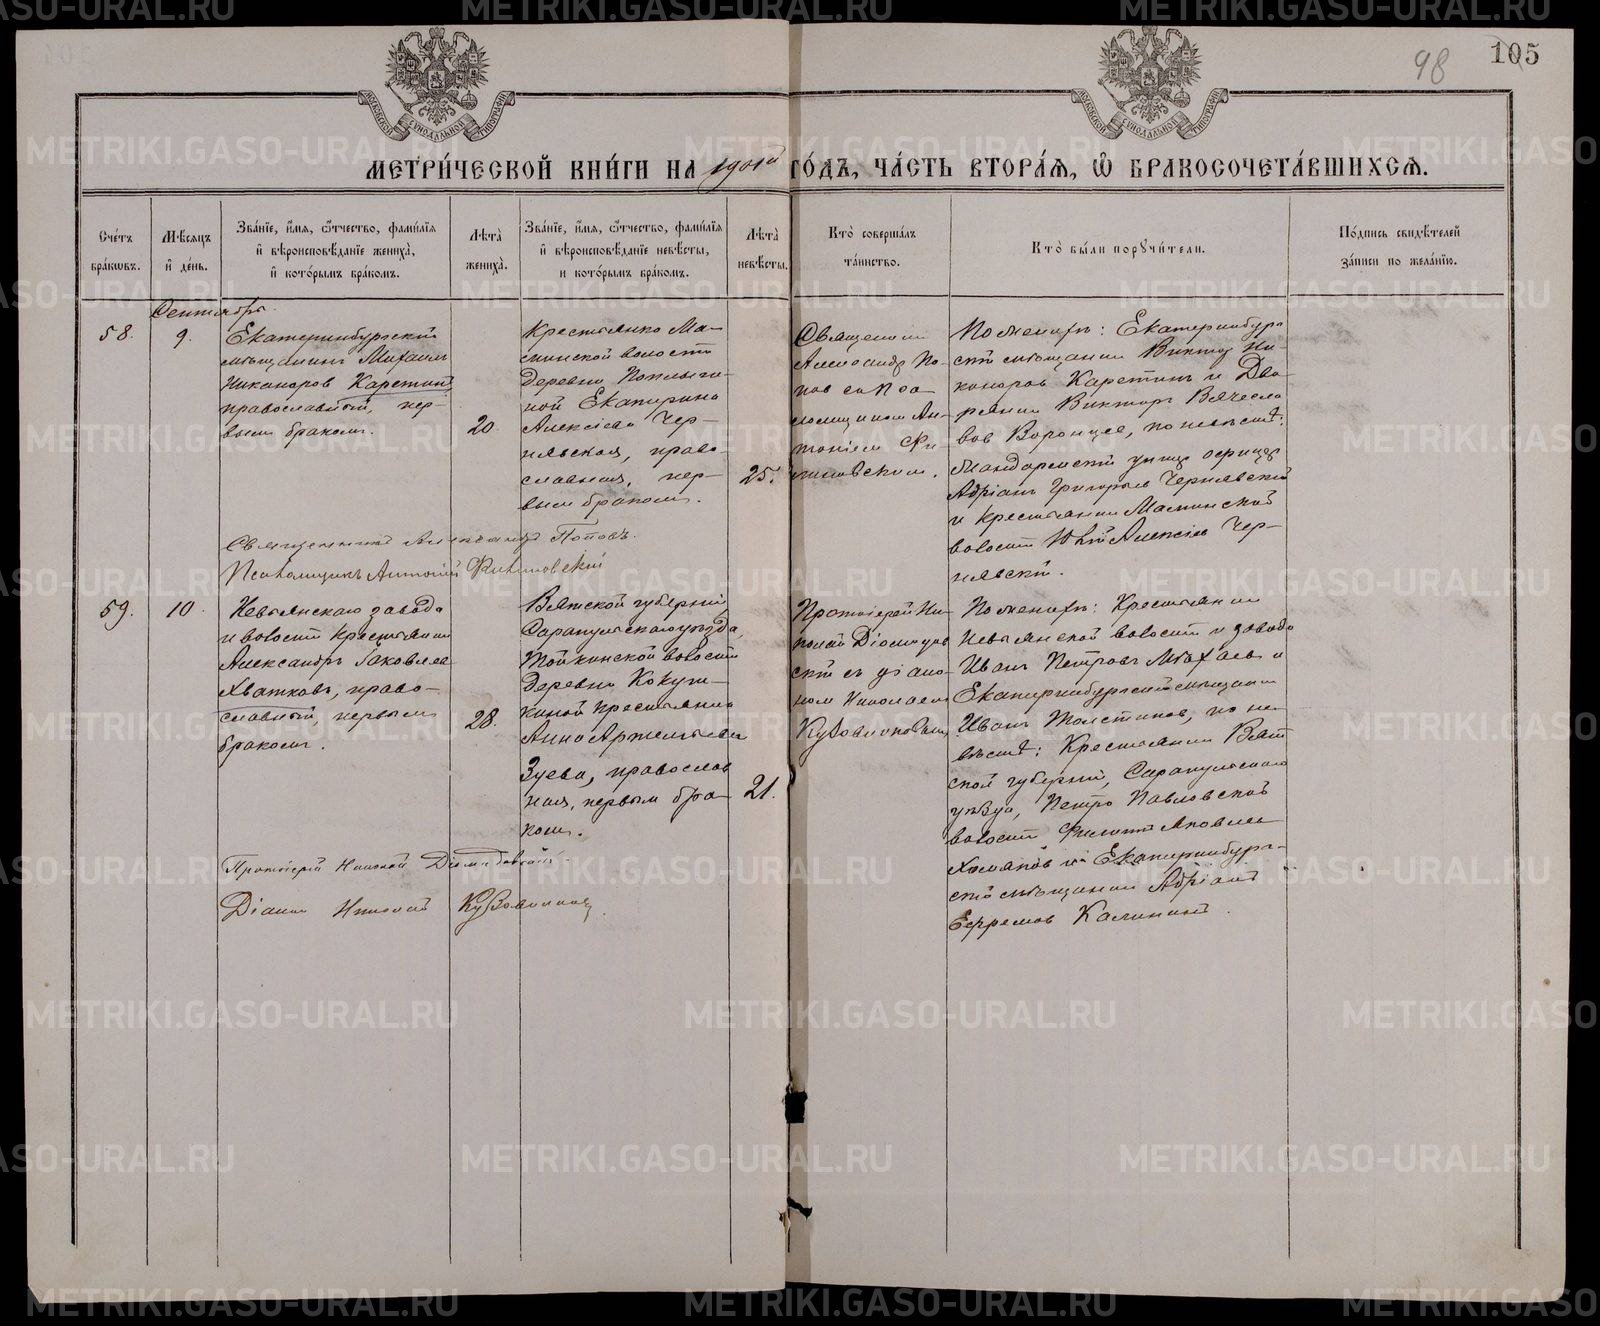 98 105
МОСКОВСКОЙ СѴНОДАЛЬНОЙ ТИПОГРАФІИ
МОСКОВСКОЙ СѴНОДАЛЬНОЙ ТИПОГРАФІИ
МЕТРИ́ЧЕСКОЙ КНИ́ГИ НА 1901й ГО́ДЪ, ЧА́СТЬ ВТОРА́Я, Ѽ БРАКОСОЧЕТА́ВШИХСЯ.
Сче́тъ
бра́кѡвъ.
Мѣ́сяцъ
и҆ де́нь.
Зва́нїе, и҆́мя, ѻ҆́тчество, фами́лїя
и҆ вѣроисповѣ́данїе жениха̀,
и҆ кото́рымъ бра́комъ.
Лѣ́та
жениха̀.
Зва́нїе, и҆́мя, ѻ҆́тчество, фами́лїя
и҆ вѣроисповѣ́данїе невѣ́сты,
и кото́рымъ бра́комъ.
Лѣ́та
невѣ́сты.
Кто̀ соверша́лъ
та́инство.
Кто̀ бы́ли поручи́тели.
По́дпись свидѣ́телей
за́писи по жела́нїю.
Сентябрь.
58.
9.
Екатеринбургскій
мѣщанинъ Михаилъ
Никаноровъ Каретинъ
православный, пер-
вымъ бракомъ.
20.
Крестьянка Ма-
минской волости
деревни
Екатерина
Алексіева Чер-
нявская, право-
славная, пер-
вымъ бракомъ.
25.
Священникъ
Александр По-
повъ съ пса-
ломщикомъ Ан-
тоніем
По женихѣ: Екатеринбург
скій мѣщанин Виктор Ни-
каноровъ Каретинъ и Дво-
рянинъ Викторъ Вячесла
вовъ Воронцов, по невѣстѣ:
Жандармскій унтер офицеръ
Адріанъ Григорьев Чернявскій
и крестьянин Маминской
волости Алексіев Чер-
нявскій.
Священникъ Александръ Поповъ.
Псаломщикъ Антоній
59.
10.
Невьянскаго завода
и волости крестьянин
Александръ Іаковлев
Хватковъ, право-
славный, первымъ
бракомъ.
28.
Вятской губерніи
Сарапульскаго уѣзда,
волости
деревни
крестьянка
Анна
Зуева, православ
ная, первымъ бра-
комъ.
21.
Протоіерей Ни-
колай Діомидов
скій съ діако-
ном Николаем
По женихѣ: Крестьянин
Невьянской волости и завода
Иванъ Петровъ и
Екатеринбургскій мѣщанин
Иванъ Толстиков, по не-
вѣстѣ: Крестьянин Вят
ской губерніи, Сарапульскаго
уѣзда, Петро Павловской
волости Филиппъ Яковлев
Хомяковъ и Екатеринбург-
скій мѣщанин Адріанъ
Ефремов Калининъ.
Протоіерей Николай Діомидовскій.
Діаконъ Николай
METRIKI.GASO-URAL.RU